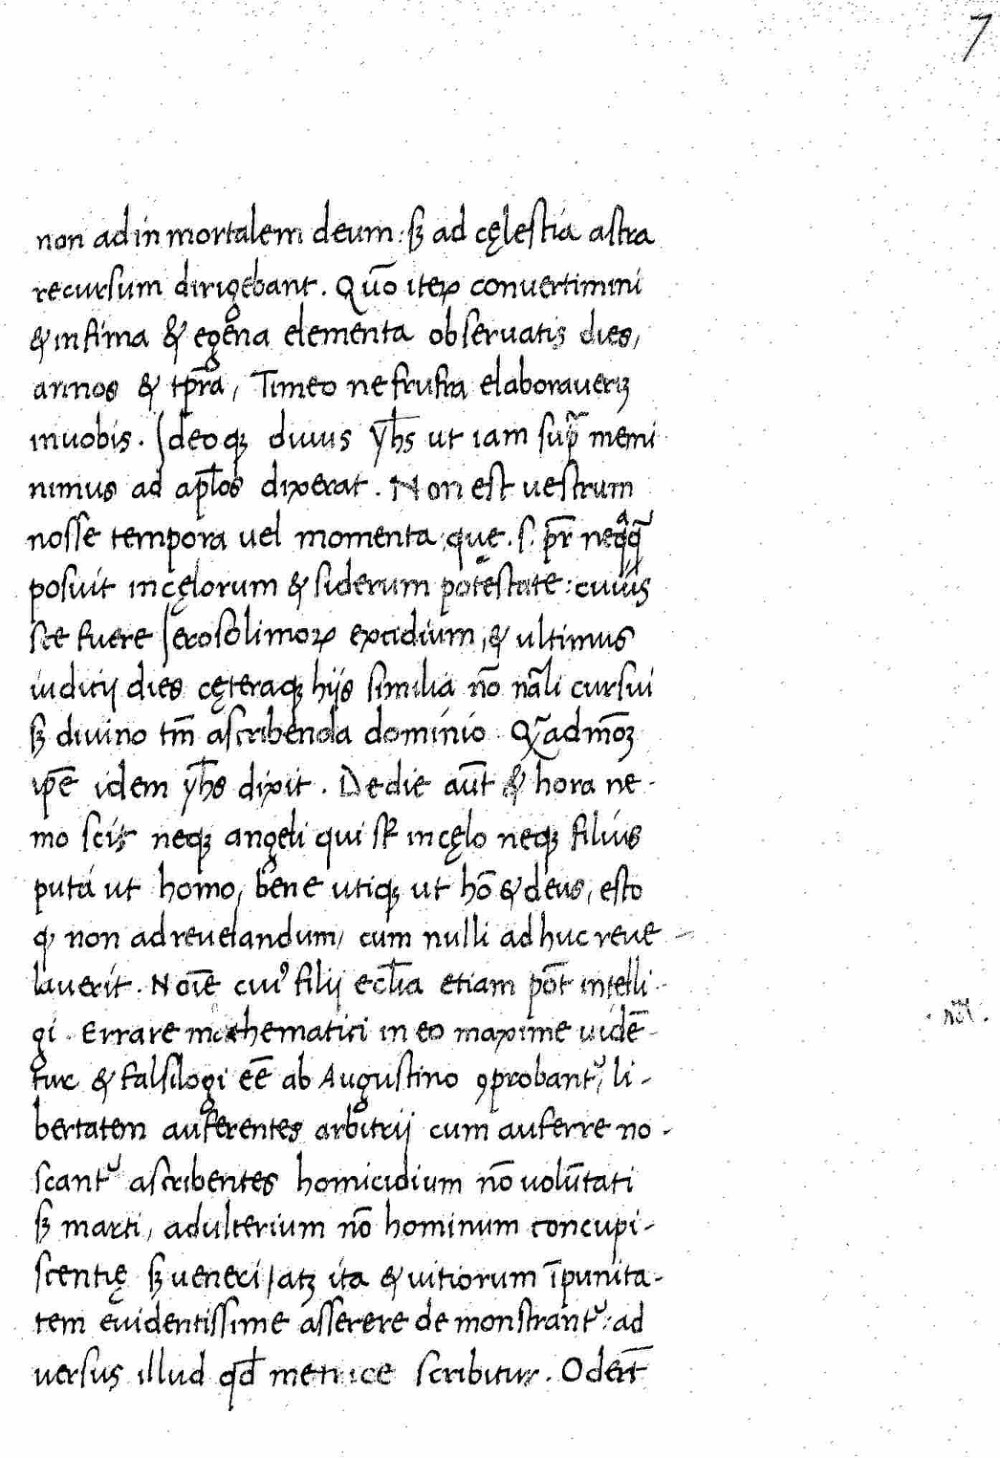 7
non ad in mortalem deum: sꝫ ad cęlestia astra
recursum dirigebant. Quō iteꝝ convertimini
& infima & egena elementa observatis dies,
annos & tp̄ra, Timeo ne frustra elaboraverꝫ
in vobis. Ideoqꝫ divus yh̄s ut iam sup̄ memi
nimus ad ap̄los dixerat. Non est vestrum
nosse tempora vel momenta que. s. pr̄ neqq̄
posuit in cęlorum & siderum potestate: cuius
sce fuere Ierosolimoꝝ excidium, & ultimus
iuditij dies cęteraqꝫ hijs similia nō nāli cursui
sꝫ divino tm̄ ascribenda dominio. Qūadmōꝫ
ip̄e idem yh̄s dixit. De die aūt & hora ne-
mo scit neqꝫ angeli qui st̄ in cęlo neqꝫ filius
puta ut homo, bene utiqꝫ ut hō & deus, esto
q, non ad revelandum, cum nulli ad huc reve-
laverit. Noīe cui⁹ filij ecl̄ia etiam pōt intelli-
gi. Errare mathematici in eo maxime vidē-
tur & falsilogi eē ab Augustino ꝯprobant᷑, li-
· nōt ·
bertatem auferentes arbitrij cum auferre no-
scant᷑ ascribentes homicidium nō volūtati
sꝫ marti, adulterium nō hominum concupi-
scentię sꝫ veneri, atꝫ ita & vitiorum īpunita-
tem evidentissime asserere demonstrant᷑: ad
versus illud qd̄ metrice scribitur. Odert̄